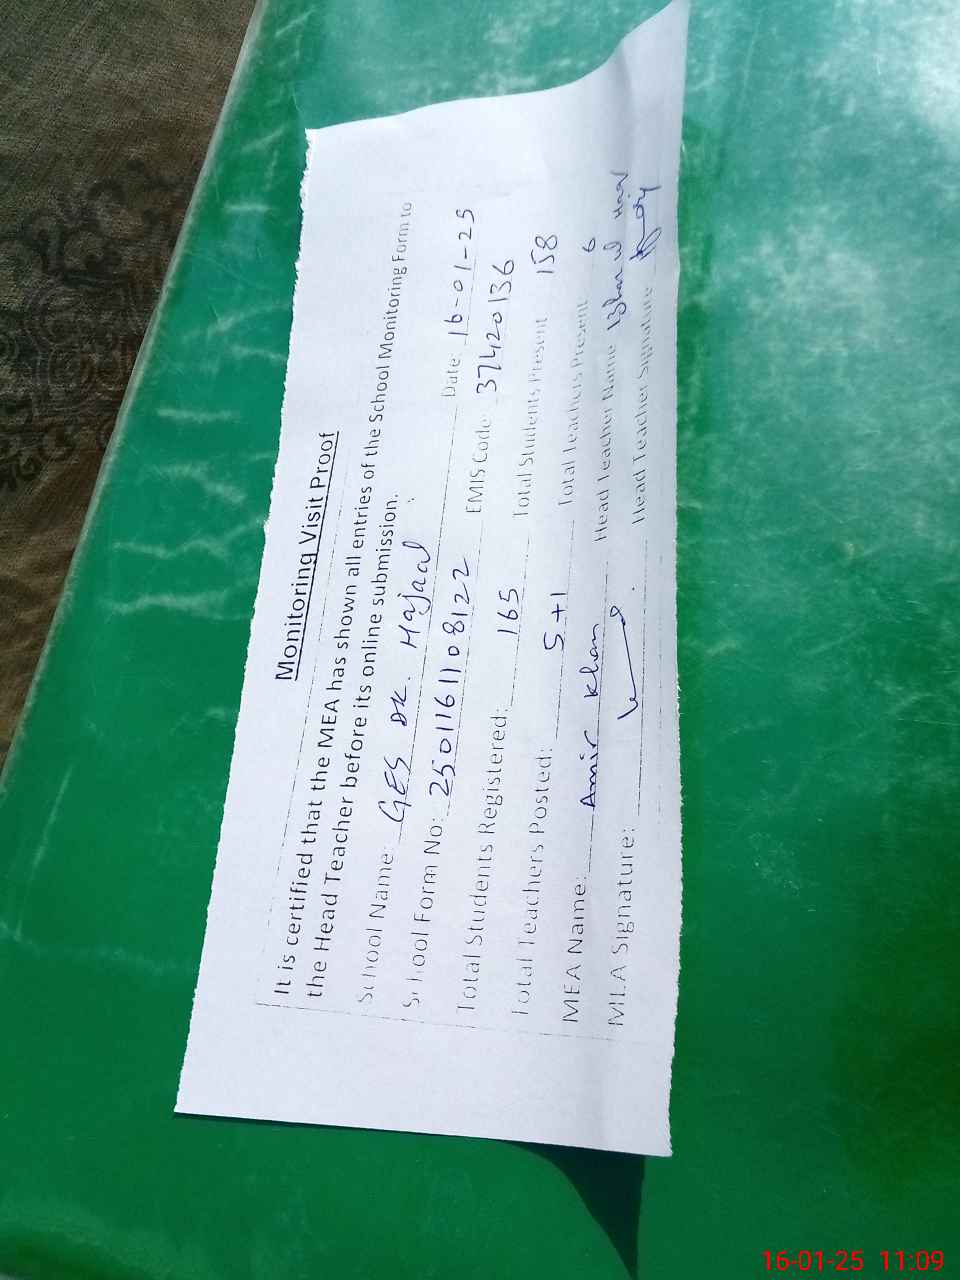 Monitoring Visit Proof
It is certified that the MEA has shown all entries of the School Monitoring Form to
the Head Teacher before its online submission.
School Name: GES DK. Hajaal Date: 16-01-25
School Form No: 2501161108122 EMIS Code: 37420136
Total Students Registered: 165 Total Students Present 158
Total Teachers Posted: 5+1 Total Teachers Present 6
MEA Name: Amir Khan Head Teacher Name
MEA Signature: Head Teacher Signature
16-01-25 11:09